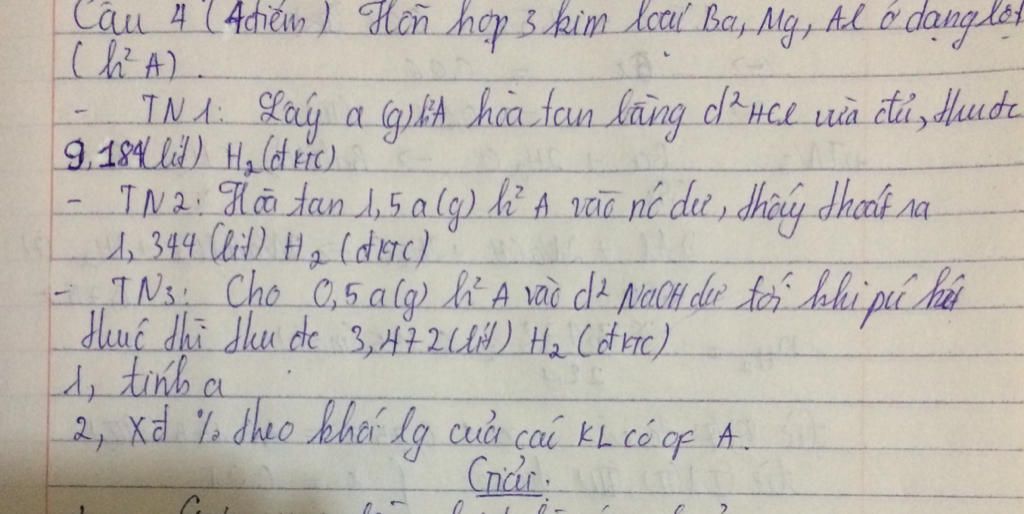 Câu 4 (4điểm) Hỗn hợp 3 kim loại Ba, Mg, Al ở dạng bột
(h² A).
- TN1: Lấy a (g) h²A hòa tan bằng d² HCl vừa đủ, thu đc
9,184(lít) H₂ (đktc)
- TN2: Hòa tan 1,5a(g) h² A vào nc dư, thấy thoát ra
1,344 (lít) H₂ (đktc)
- TN3: Cho 0,5a(g) h² A vào d² NaOH dư tới khi pứ kết
thúc thì thu đc 3,472(lít) H₂ (đktc)
1, tính a
2, Xđ % theo khối lg của các KL có
A.
Giải: